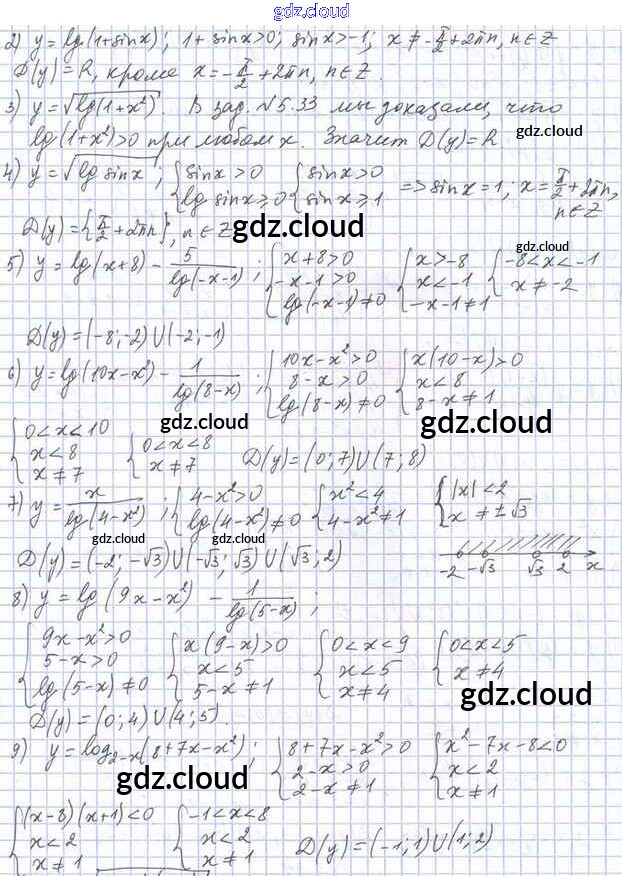 gdz.cloud
2) y = lg(1+sinx); 1+sinx>0; sinx>-1; x≠-π/2+2πn, n∈Z
D(y)=R, кроме x=-π/2+2πn, n∈Z.
3) y=√lg(1+x²). В зад. №5.33 мы доказали, что
lg(1+x²)>0 при любом x. Значит D(y)=R
gdz.cloud
4) y=√lg sinx; {sinx>0 lg sinx≥0 {sinx>0 sinx≥1 => sinx=1; x=π/2+2πn, n∈Z
D(y)={π/2+2πn}, n∈Z
gdz.cloud
gdz.cloud
5) y=lg(x+8)-5/lg(-x-1); {x+8>0 -x-1>0 lg(-x-1)≠0 {x>-8 x<-1 -x-1≠1 {-8<x<-1 x≠-2
D(y)=(-8;-2)∪(-2;-1)
6) y=lg(10x-x²)-1/lg(8-x); {10x-x²>0 8-x>0 lg(8-x)≠0 {x(10-x)>0 x<8 8-x≠1
gdz.cloud
gdz.cloud
{0<x<10 x<8 x≠7 {0<x<8 x≠7 D(y)=(0;7)∪(7;8)
7) y=x/lg(4-x²); {4-x²>0 lg(4-x²)≠0 {x²<4 4-x²≠1 {|x|<2 x≠±√3
gdz.cloud
gdz.cloud
D(y)=(-2;-√3)∪(-√3;√3)∪(√3;2)
-2 -√3 √3 2 x
8) y=lg(9x-x²)-1/lg(5-x);
{9x-x²>0 5-x>0 lg(5-x)≠0 {x(9-x)>0 x<5 5-x≠1 {0<x<9 x<5 x≠4 {0<x<5 x≠4
gdz.cloud
D(y)=(0;4)∪(4;5).
9) y=log₂₋ₓ(8+7x-x²); {8+7x-x²>0 2-x>0 2-x≠1 {x²-7x-8<0 x<2 x≠1
gdz.cloud
{(x-8)(x+1)<0 x<2 x≠1 {-1<x<8 x<2 x≠1 D(y)=(-1;1)∪(1;2)
gdz.cloud